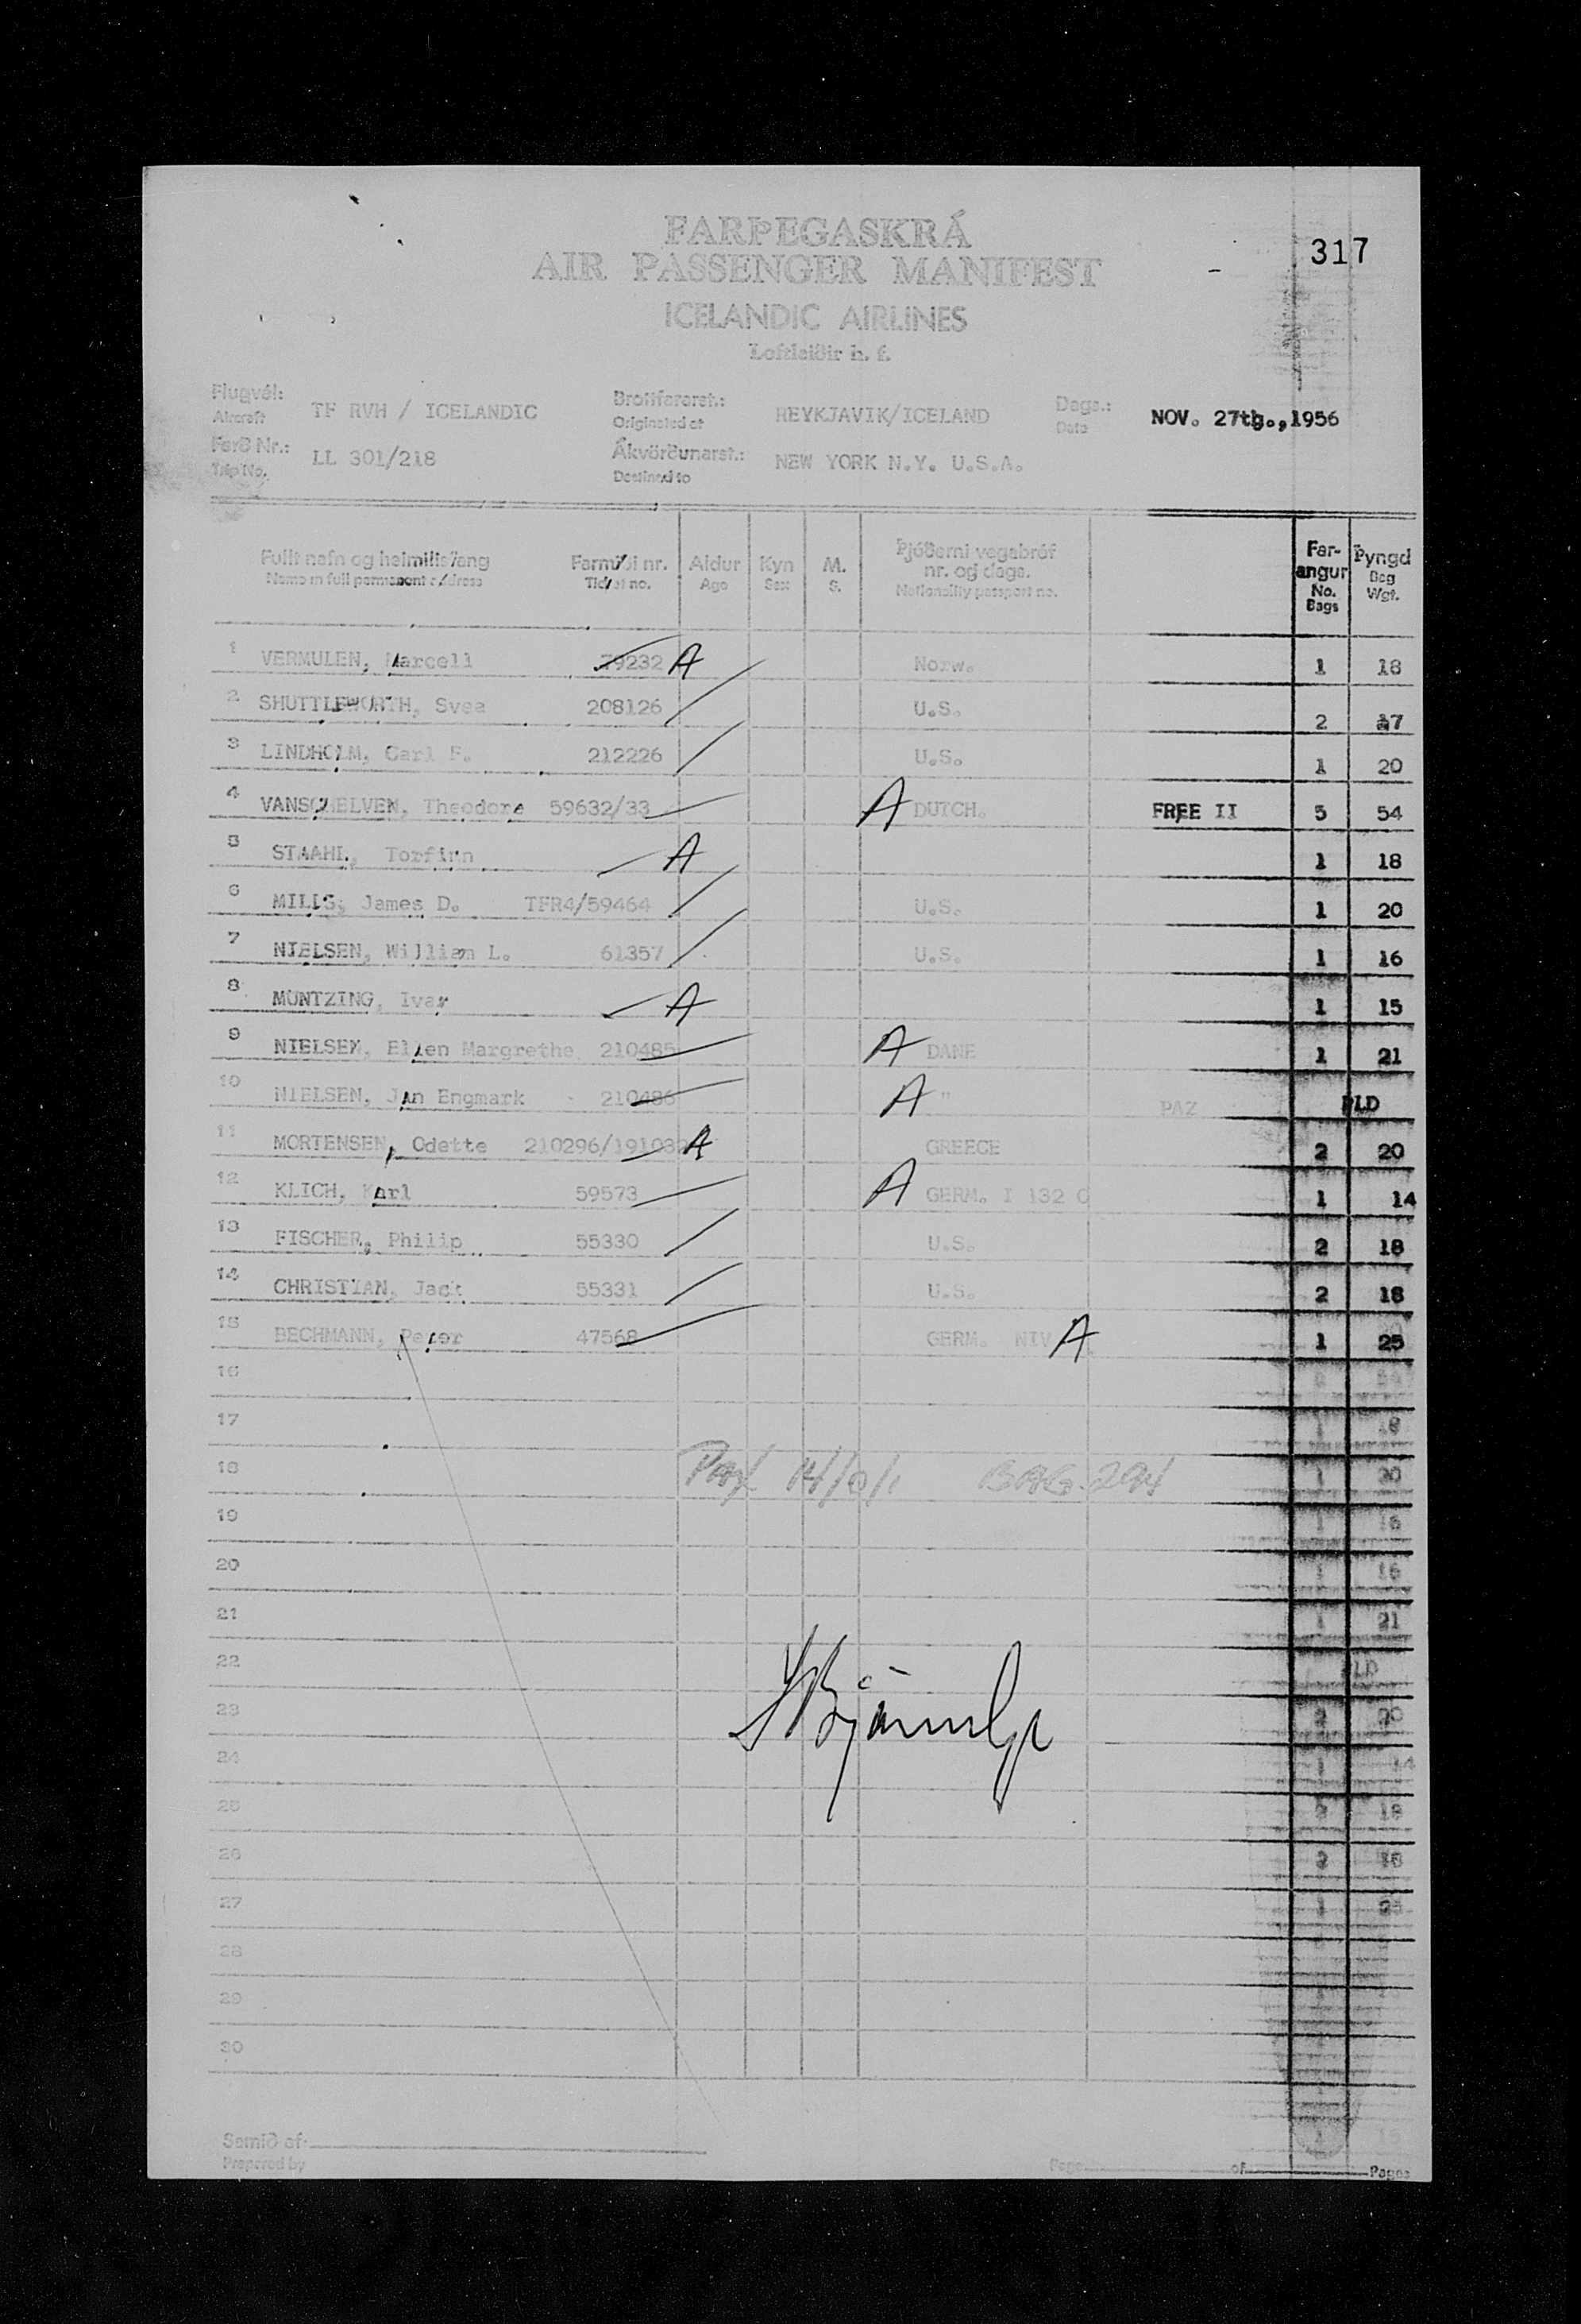 317
FARÞEGASKRÁ
AIR PASSENGER MANIFEST
ICELANDIC AIRLINES
Loftleiðir h. f.
Flugvél: TF RVH / ICELANDIC Brottfararst.: REYKJAVIK/ICELAND Dags.: NOV. 27th.,1956
Aircraft Originated at Date
Ferð Nr.: LL 301/218 Ákvörðunarst.: NEW YORK N.Y. U.S.A.
Trip No. Destined to
Fullt nafn og heimilisfang Farmiði nr. Aldur Kyn M. Þjóðerni vegabréf nr. og dags. Far-angur Þyngd
Name in full permanent address Ticket no. Age Sex S. Nationality passport no. No. Bags Bag Wgt.
1 VERMULEN, Marcell 79232 A Norw. 1 18
2 SHUTTLEWORTH, Svea 208126 U.S. 2 17
3 LINDHOLM, Carl F. 212226 U.S. 1 20
4 VANSCHELVEN, Theodore 59632/33 A DUTCH. FREE II 5 54
5 STAAHL, Torfinn A 1 18
6 MILLS, James D. TFR4/59464 U.S. 1 20
7 NIELSEN, William L. 61357 U.S. 1 16
8 MUNTZING, Ivar A 1 15
9 NIELSEN, Ellen Margrethe 210485 A DANE 1 21
10 NIELSEN, Jan Engmark 210486 A " PAZ PLD
11 MORTENSEN, Odette 210296/19103 A GREECE 2 20
12 KLICH, Karl 59573 A GERM. I 132 C 1 14
13 FISCHER, Philip 55330 U.S. 2 18
14 CHRISTIAN, Jack 55331 U.S. 2 18
15 BECHMANN, Peter 47568 GERM. NIV A 1 25
16
17 1 18
18 PAX 14/0/1 BAG. 294 1 20
19 1 16
20 1 15
21 1 21
22 PLD
23 2 20
24 1 14
25 2 18
26 2 18
27 1 25
28
29
30
Samið af
Prepared by Page of Pages